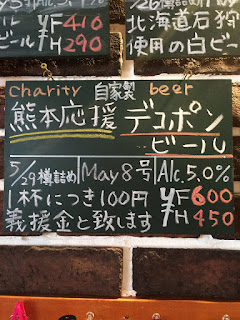 ビール ¥F410
H290
北海道石狩
使用の白ビー
charity 自家製 beer
熊本応援 デコポン
ビール
5/29樽詰め May8号 Alc.5.0%
1杯につき100円 ¥F600
義援金と致します ¥H450